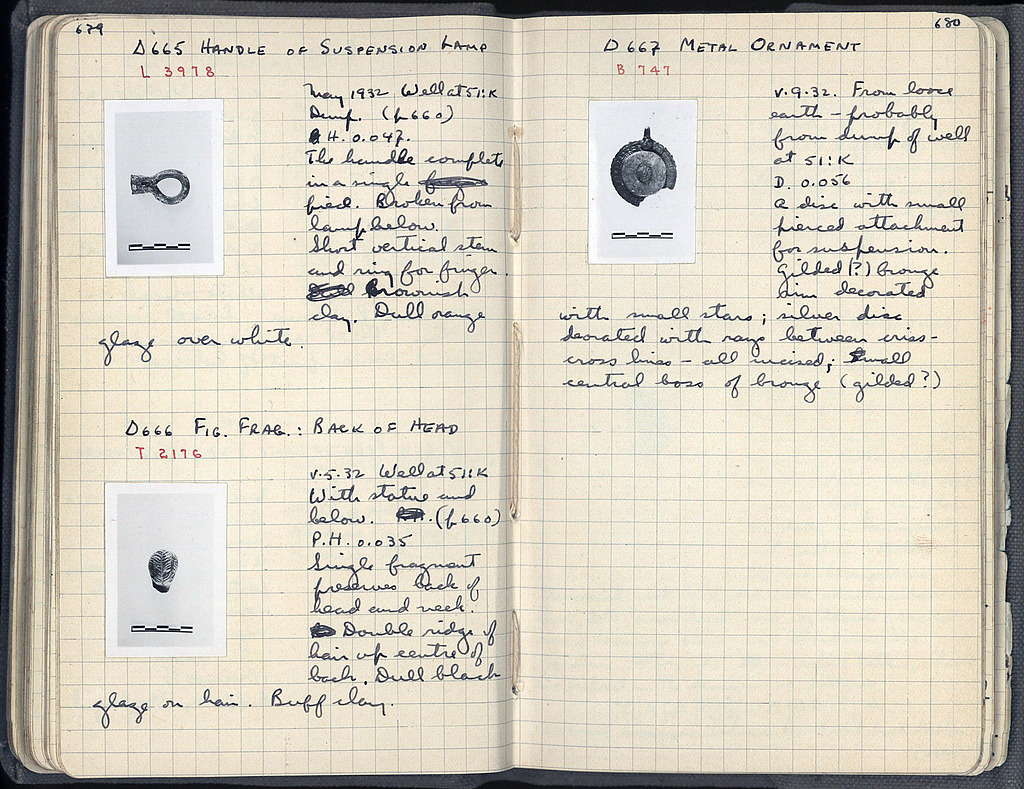 679
Δ665 HANDLE OF SUSPENSION LAMP
L 3978
May 1932 Well at 51:K
Dump. (p660)
H. 0.047.
The handle complete
in a single
piece. Broken from
lamp below.
Short vertical stem
and ring for finger.
Brownish
clay. Dull orange
glaze over white.
Δ666 FIG. FRAG.: BACK OF HEAD
T 2176
V.5.32 Well at 51:K
With statue and
below. (p660)
P.H. 0.035
Single fragment
preserves back of
head and neck.
Double ridge of
hair up centre of
back. Dull black
glaze on hair. Buff clay.
680
Δ667 METAL ORNAMENT
B 747
V.9.32. From loose
earth – probably
from dump of well
at 51:K
D. 0.056
A disc with small
pierced attachment
for suspension.
Gilded(?) bronze
rim decorated
with small stars; silver disc
decorated with rays between criss-
cross lines – all incised; small
central boss of bronze (gilded?)